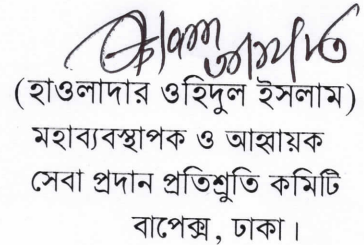 (হাওলাদার ওহিদুল ইসলাম)
মহাব্যবস্থাপক ও আহ্বায়ক
সেবা প্রদান প্রতিশ্রুতি কমিটি
বাপেক্স, ঢাকা।